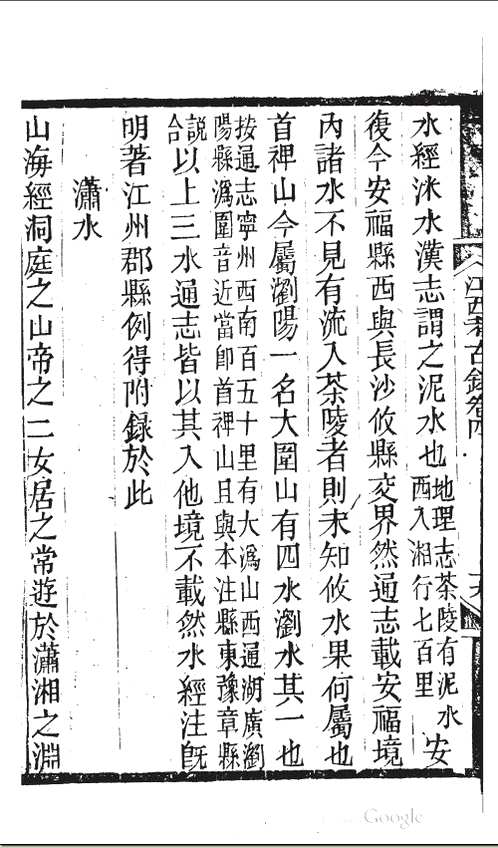 江西考古錄卷四
水經洣水漢志謂之泥水也地理志茶陵有泥水西入湘行七百里安
復今安福縣西與長沙攸縣交界然通志載安福境
內諸水不見有流入茶陵者則未知攸水果何屬也
首裨山今屬瀏陽一名大圍山有四水瀏水其一也
按通志寧州西南百五十里有大溈山西通湖廣瀏
陽縣溈圍音近當卽首裨山且與本注縣東豫章縣
說合以上三水通志皆以其入他境不載然水經注旣
明著江州郡縣例得附錄於此
瀟水
山海經洞庭之山帝之二女居之常遊於瀟湘之淵
Google